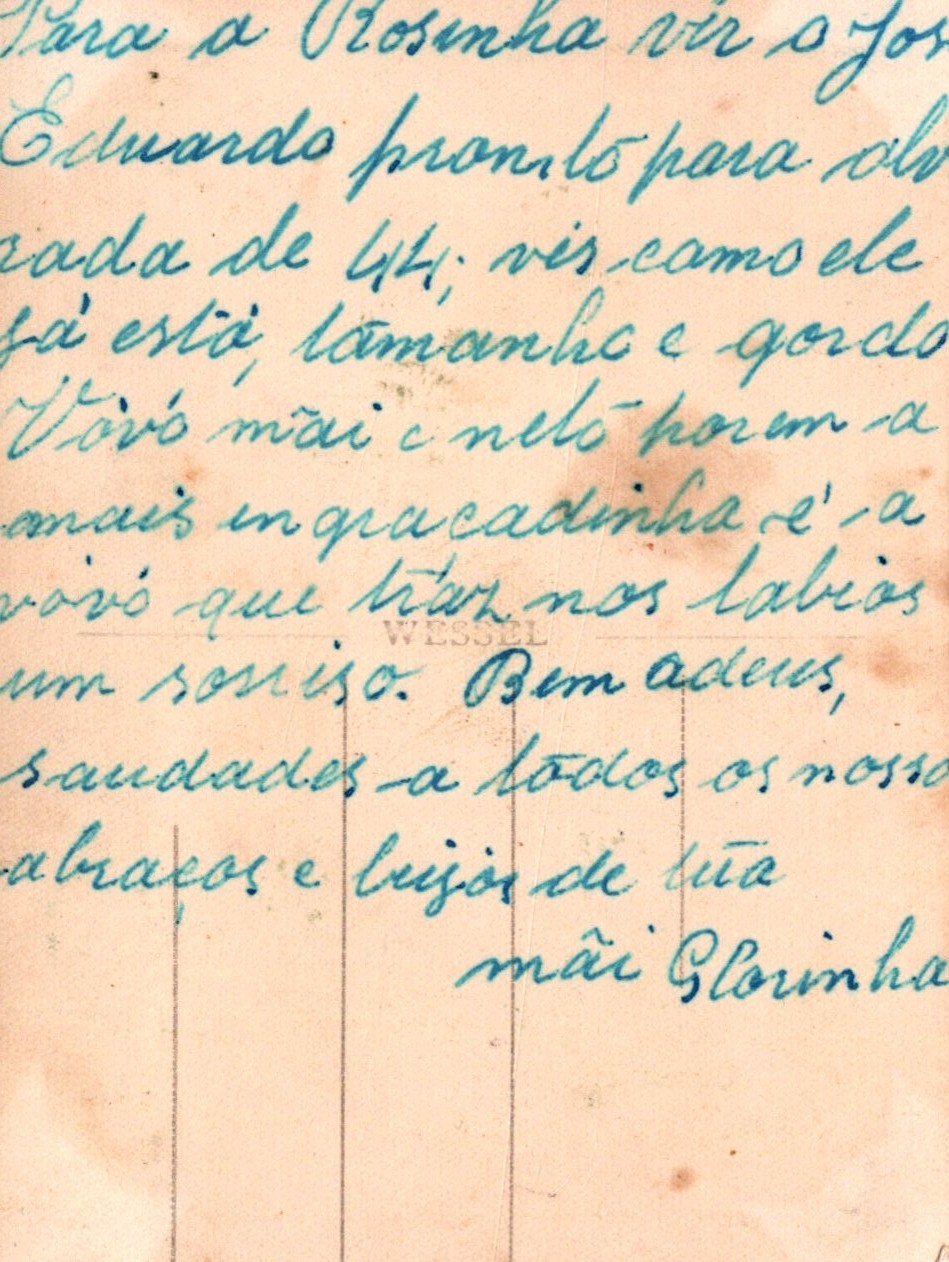 Para a Rosinha vir o Jos
Eduardo pronto para alv
rada de 44; vir como ele
já está, tamanho e gordo
Vóvó mãi e neto porem a
mais engraçadinha é a
vóvó que tráz nos labios
WESSEL
um sorriso. Bem adeus,
saudades a todos os nosso
abraços e beijos de tua
mãi Glorinha